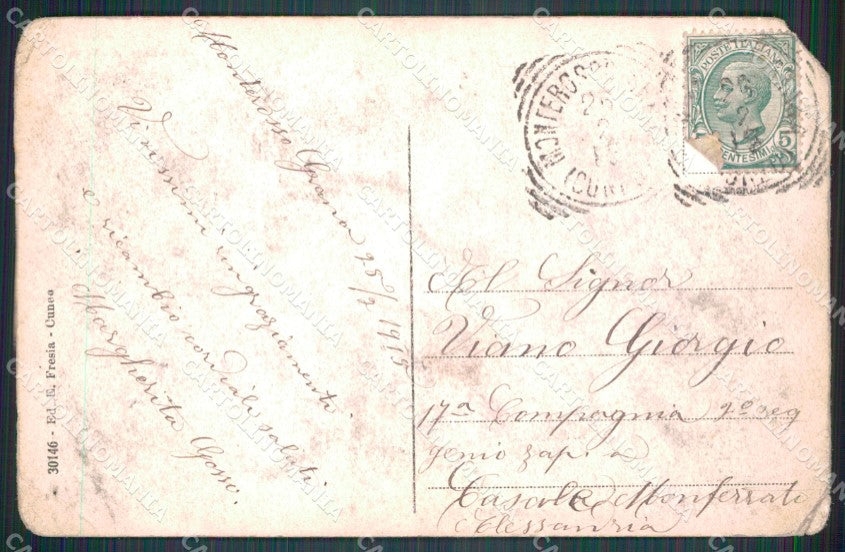 Monterosso Grana 25/7 1915
Vivissimi ringraziamenti
e ricambio cordiali saluti
Margherita Gosso.
30146 - Ed. E. Fresia - Cuneo
MONTEROSSO
(CUN
POSTE ITALIANE
5
CENTESIMI
Al Signor
Viano Giorgio
17ª Compagnia 2º reg
genio zap.
Casale Monferrato
Alessandria
CARTOLINOMANIA